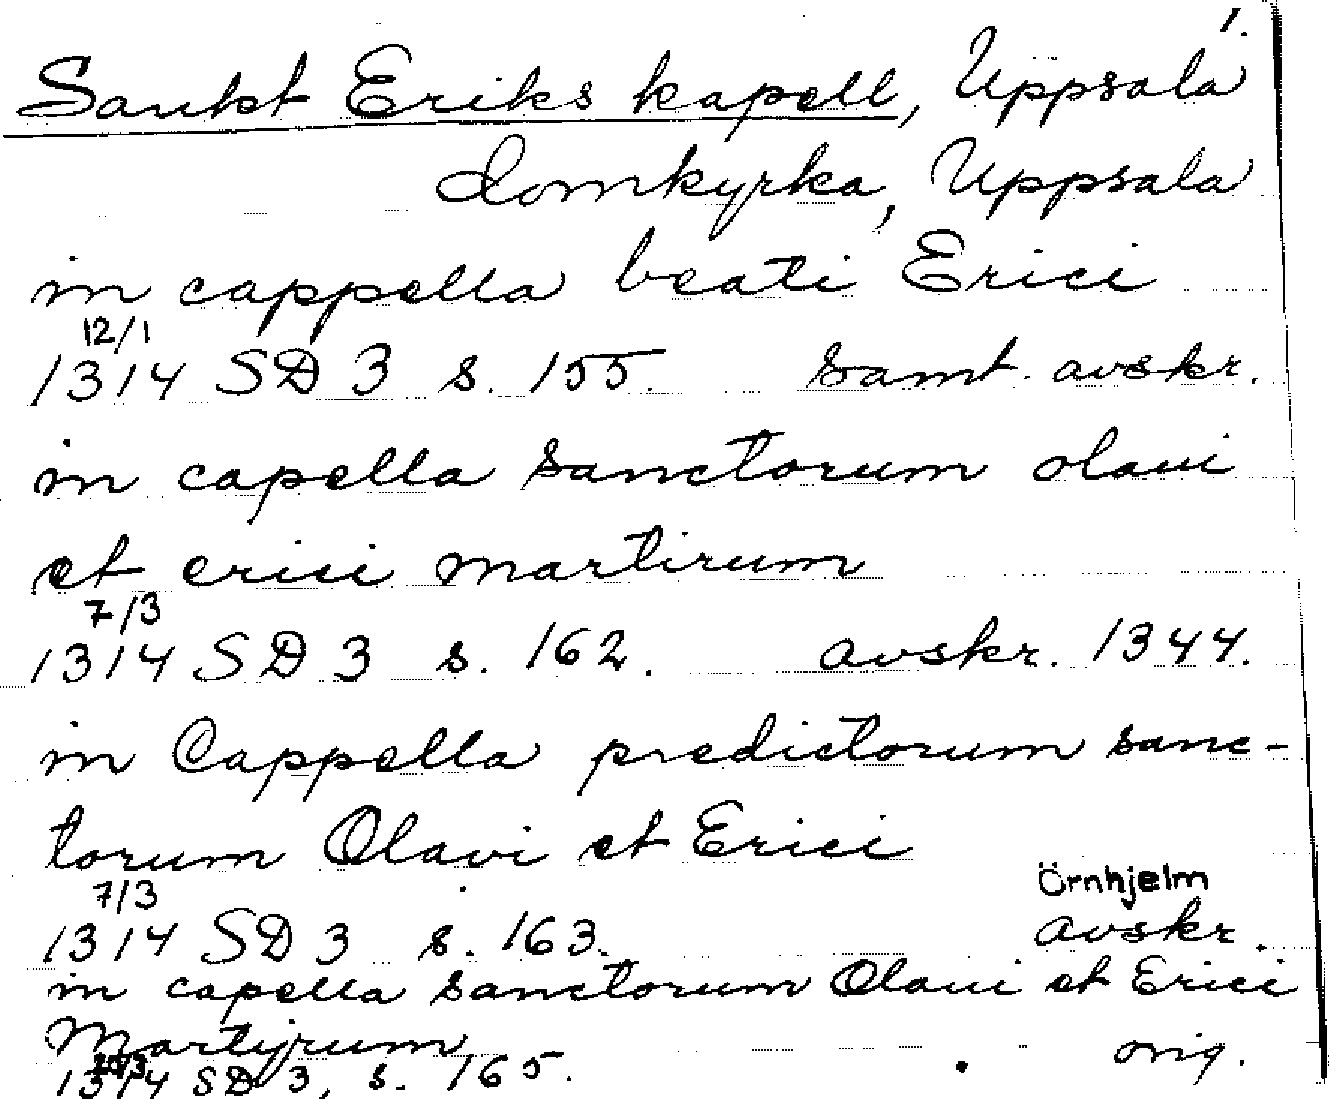 1.
Sankt Eriks kapell, Uppsala
domkyrka, Uppsala
in cappella beati Erici
12/1
1314 SD 3 s. 155. samt. avskr.
in capella sanctorum olaui
et erici martirum
7/3
1314 SD 3 s. 162. avskr. 1344.
in Cappella predictorum sanc-
torum Olavi et Erici
7/3 Örnhjelm
1314 SD 3 s. 163. avskr.
in capella sanctorum Olaui et Erici
Martyrum orig.
1314 SD 3, s. 165.